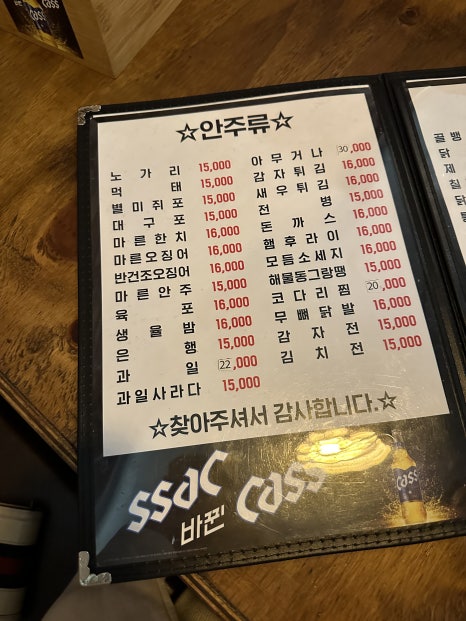 ☆안주류☆
노가리 15,000
먹태 15,000
별미쥐포 15,000
대구포 15,000
마른한치 16,000
마른오징어 16,000
반건조오징어 16,000
마른안주 15,000
육포 16,000
생율밤 16,000
은행 15,000
과일 22,000
과일사라다 15,000
아무거나 30,000
감자튀김 16,000
새우튀김 16,000
전병 16,000
돈까스 16,000
햄후라이 16,000
모듬소세지 16,000
해물동그랑땡 15,000
코다리찜 20,000
무뼈닭발 16,000
감자전 15,000
김치전 15,000
☆찾아주셔서 감사합니다.☆
ssac
바뀐 cass
cass
골뱅
닭
제
칠
닭
cass
Cass